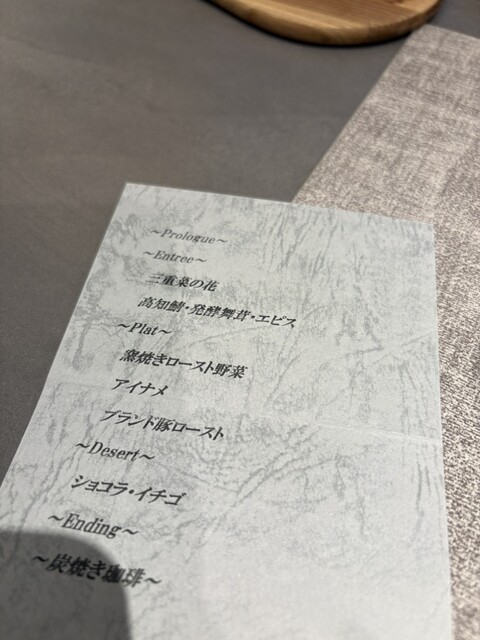 ～Prologue～
～Entree～
三重菜の花
高知鯖・発酵舞茸・エピス
～Plat～
窯焼きロースト野菜
アイナメ
ブランド豚ロースト
～Desert～
ショコラ・イチゴ
～Ending～
～炭焼き珈琲～